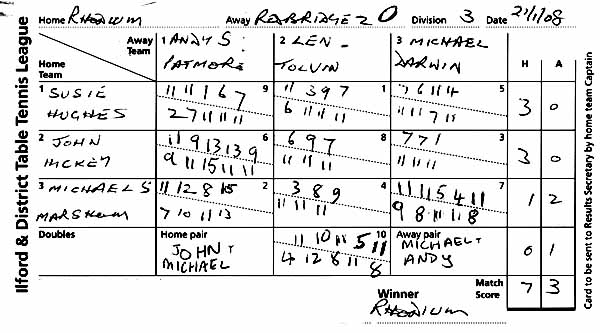 Ilford & District Table Tennis League
Home RHODIUM Away REDBRIDGE 2 Division 3 Date 21/1/08
Away Team
Home Team
1 ANDY S. PATMORE
2 LEN TOLVIN
3 MICHAEL DARWIN
H A
1 SUSIE HUGHES
9
11 11 1 6 7
2 7 11 11 11
1
11 3 9 7
6 11 11 11
5
6 11 4
11 11 7 11
3 0
2 JOHN HICKEY
6
11 9 13 13 9
9 11 15 11 11
8
6 9 7
11 11 11
3
7 7 1
11 11 11
3 0
3 MICHAEL S MARSHOM
2
11 12 8 15
7 10 11 13
4
3 8 9
11 11 11
7
11 11 5 4 11
9 8 11 11 8
1 2
Doubles
Home pair
JOHN + MICHAEL
10
11 10 11 5 11
4 12 8 11 8
Away pair
MICHAEL + ANDY
0 1
Winner RHODIUM
Match Score 7 3
Card to be sent to Results Secretary by home team Captain